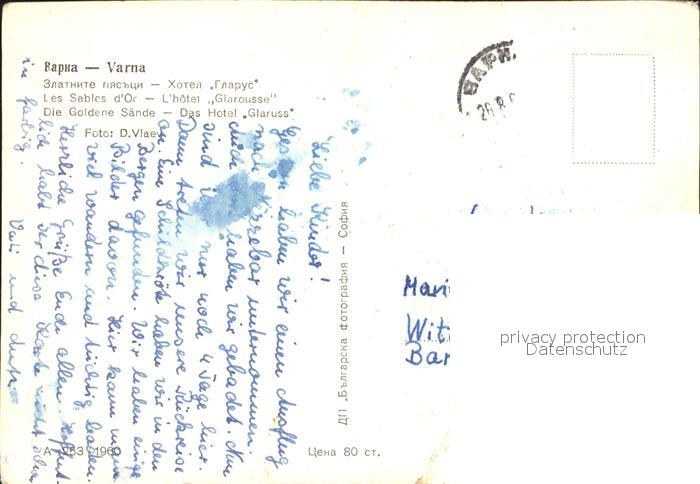 Варна — Varna
Златните пясъци — Хотел „Гларус“
Les Sables d'Or — L'hôtel „Glarousse“
Die Goldene Sände — Das Hotel „Glaruss“
Foto: D. Vlaev
Liebe Kinder!
Gestern haben wir einen Ausflug
nach Nessebar unternommen
auch haben wir gebadet. Nun
sind wir nur noch 4 Tage hier.
Dann treten wir unsere Rückreise
an. Eine Schildkröte haben wir in den
Bergen gefunden. Wir haben einige
Bilder davon. Hier kann man
viel wandern und tüchtig baden.
Herzliche Grüße Euch allen. Hoffent-
lich habt Ihr diese Karte nicht
in
Vati und
А - 253 1960
Цена 80 ст.
ДП „Българска Фотография“ — София
ВАРН
26.8.6
Mari
Wit
Bar
privacy protection
Datenschutz